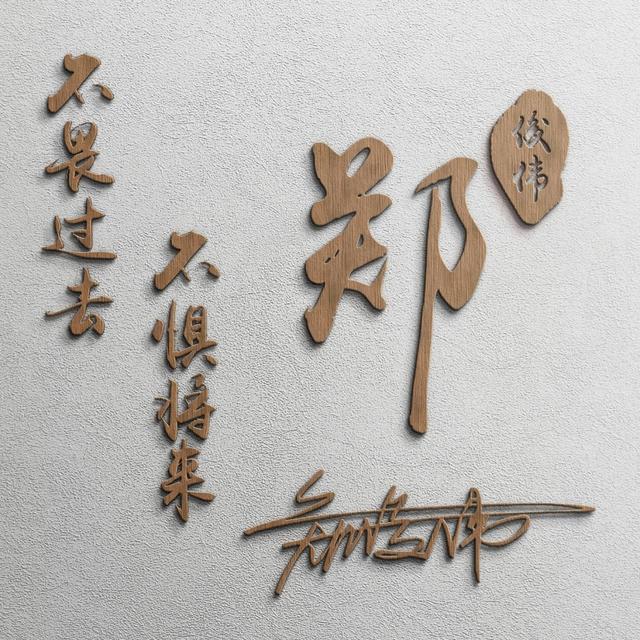 不畏过去
不惧将来
郑
俊伟